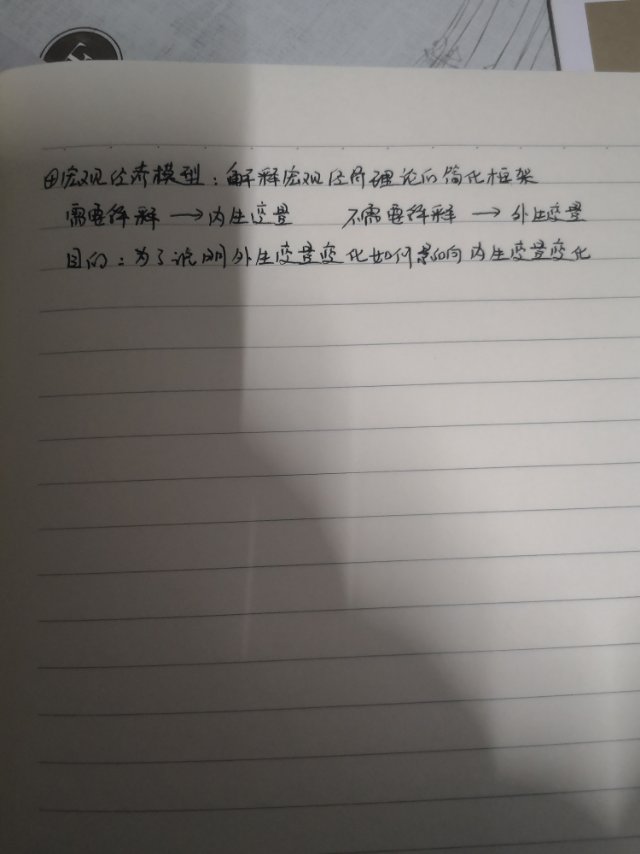 ④宏观经济模型：解释宏观经济理论的简化框架
需要解释→内生变量 不需要解释→外生变量
目的：为了说明外生变量变化如何影响内生变量变化